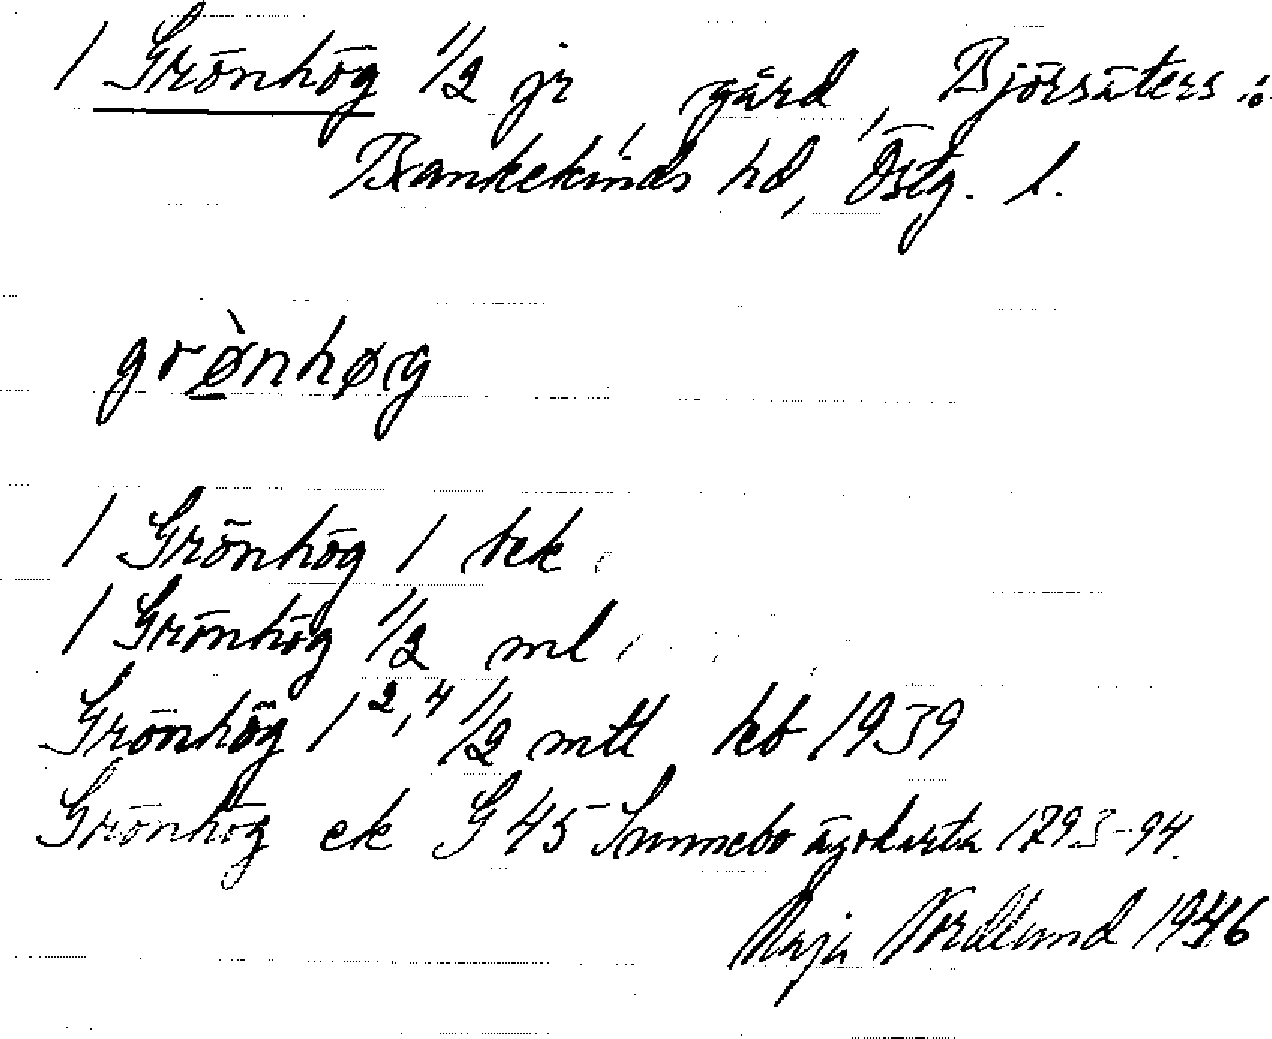 1 Grönhög 1/2 jr, gård, Björsäters :
Bankekinds hd, Östg. l.
grø̀nhøg
1 Grönhög 1 tek
1 Grönhög 1/2 ml
Grönhög 1 2,4 1/2 mtl kb 1939
Grönhög ek G 45 Sunnebo ägokarta 1793-94.
Maja Nordlund 1946